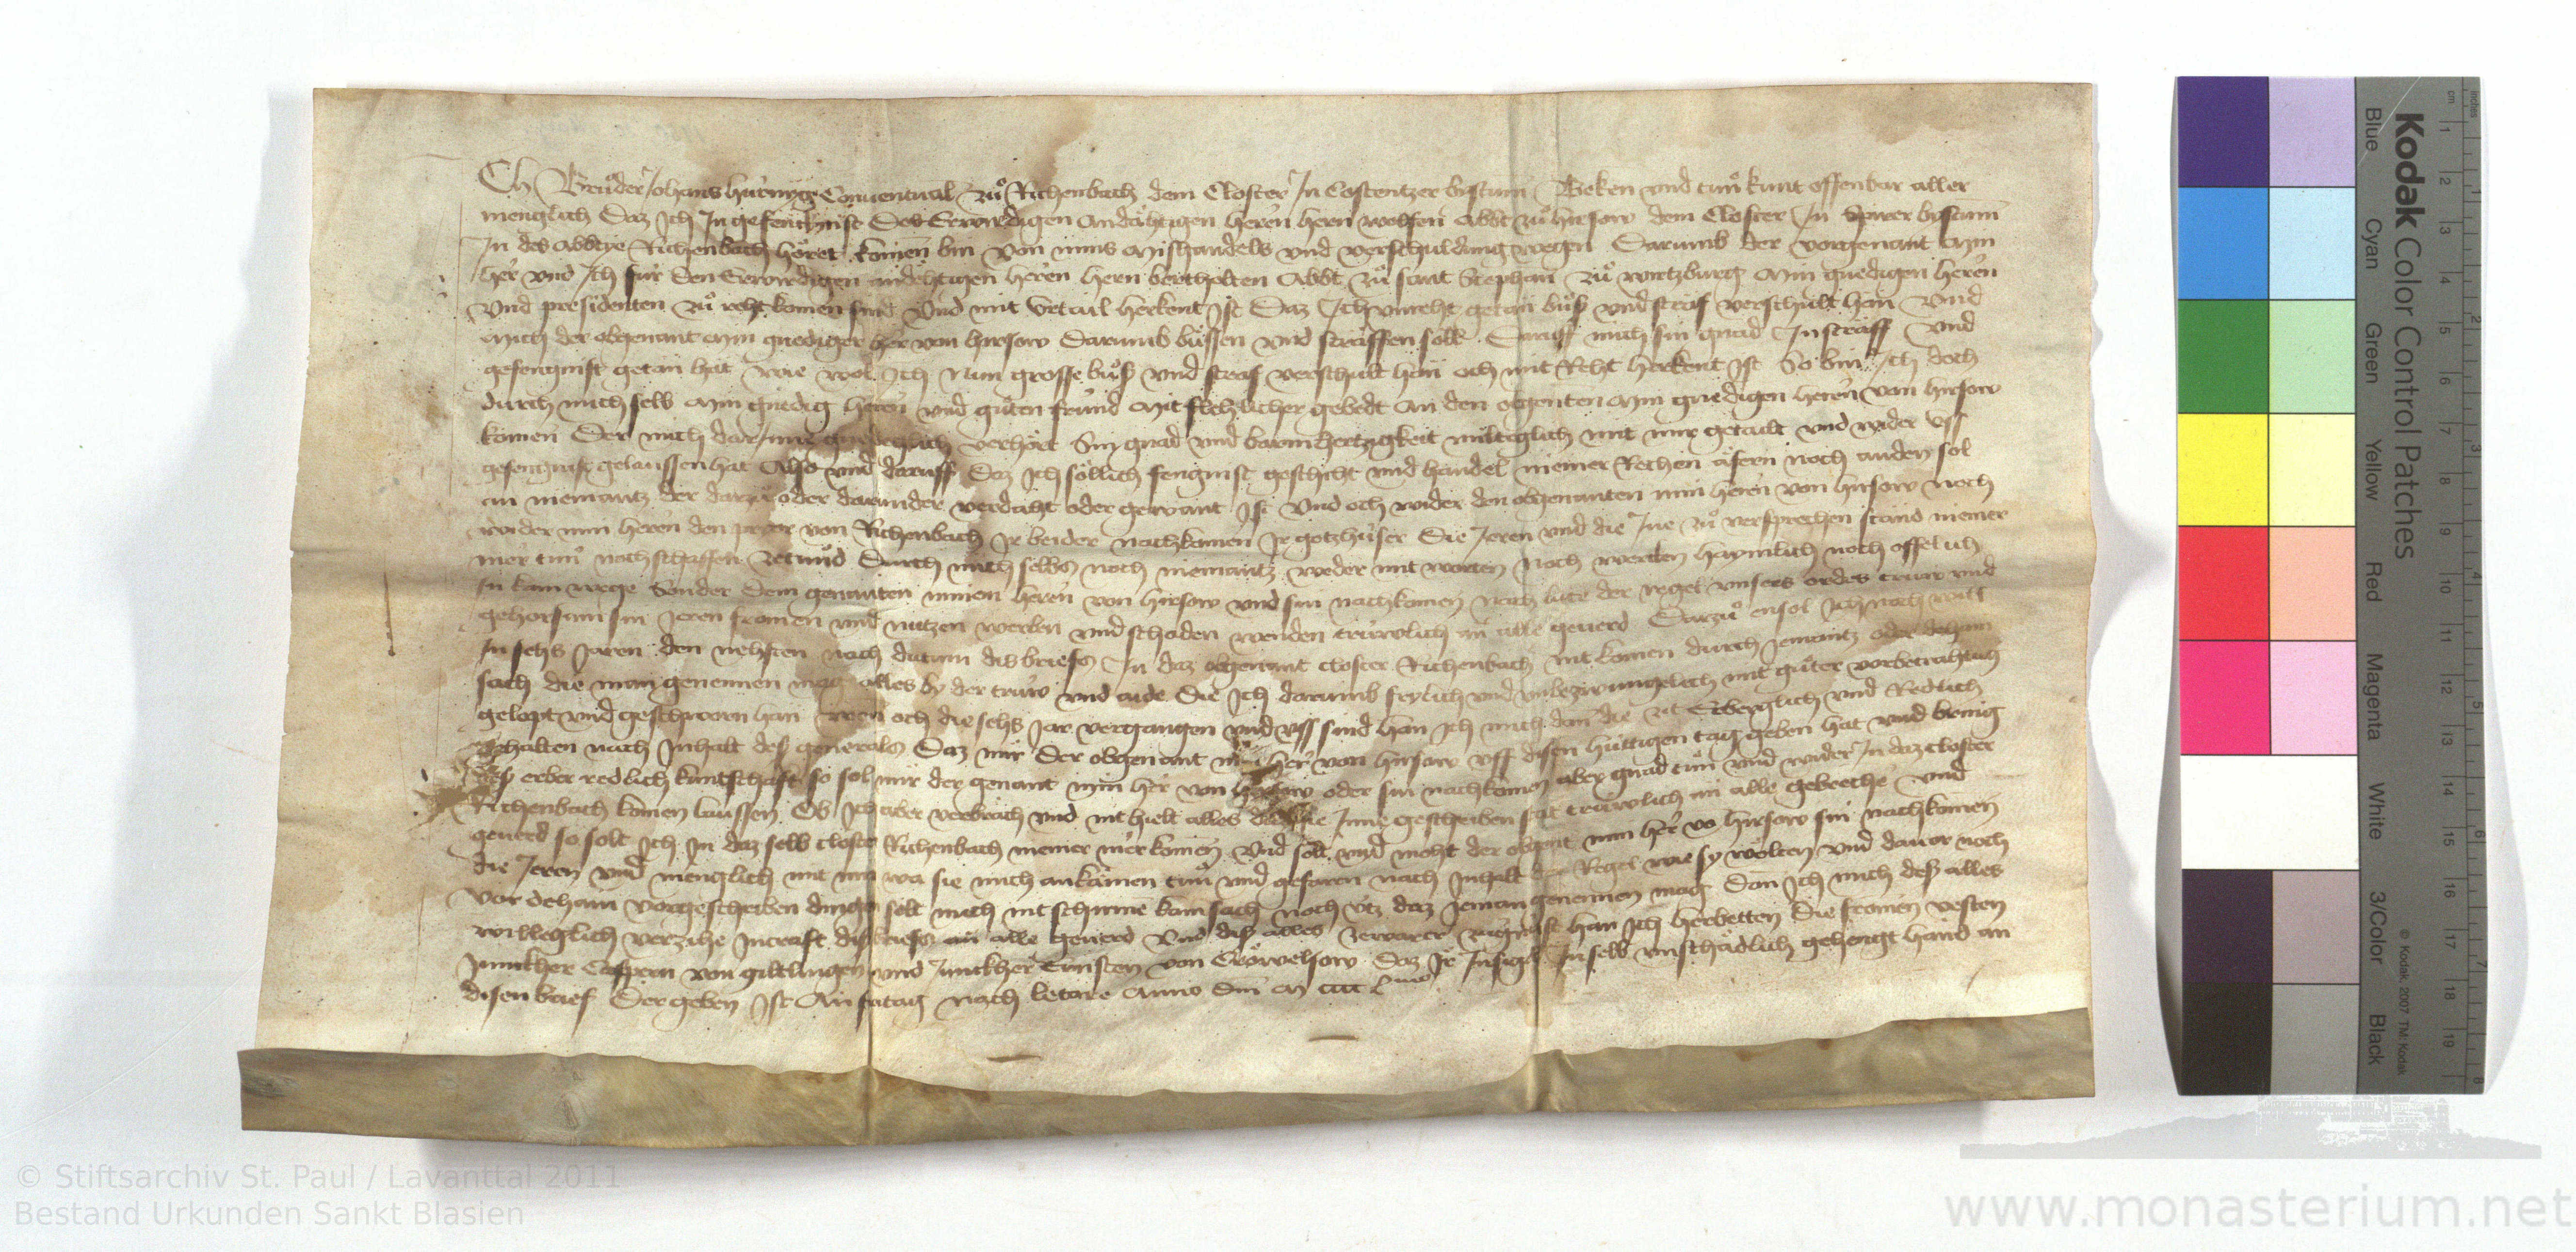 Ich Brůder Johans Conuentual zů Richenbach dem Closter In Costentzer bystum Beken vnd tuͦn kunt offenbar aller
menglich Daz Ich In gefencknist Des Erwirdigen Andähtigen heren hern wolfen Abbt zů hirsow dem Closter In Spirer bystum
In des Abbtye Richenbach höret komen bin von mins mishandels vnd verschuldung wegen Darumb der vorgenant myn
her vnd Ich fur den Erwirdigen andehtigen heren hern bertholten Abbt zů sant Stephan zů wirtzburg myn gnedigen heren
vnd presidenten zů reht komen sind Vnd mit vrtail herkent Ist Daz Ich vnreht getan bůß vnd straf verschult han Vnd
mich der obgenant myn gnediger her von hirsow Darumb büssen vnd straffen solle Daruff mich sin gnad In straff vnd
gefengnist getan hat wie wol Ich Nun grosse bůß vnd straf verschult han och mit Reht herkent Ist So bin Ich doch
durch mich selb myn gnedig heren vnd gůten frund mit flehlicher gebedt an den obgenten myn gnedigen heren von hirsow
komen Der mich darInne gnedeclich verhört Sin gnad vnd barmhertzigkeit milteglich mit mir getailt vnd wider vss
gefengnist gelaussen hat Also vnd daruff Daz Ich söllich fengnist geschicht vnd handel niemer Rechen äfern noch anden sol
an niemantz der darzů oder darunder verdaht oder gewant Ist Vnd och wider den obgenanten min heren von hirsow noch
wider min heren den prior von Richenbach Ir beider nachkomen Ir gotzhüser Die Ieren vnd die Ine zů versprechen stand niemer
mer tuͦn noch schaffen getuͦnd Durch mich selbs noch niemantz weder mit worten Noch werken haymlich noch offelich
In kain wege Sonder Dem genanten minen heren von hirsow vnd sin nachkomen nach lute der regel vnsers ordes truw vnd
gehorsam sin Ieren fromen vnd nutzen werben vnd schaden wenden trüwlich an alle geuerd Darzů ensol Ich noch will
In sehs Iaren den nehsten nach datum dis briefs In daz obgenant closter Richenbach nit komen durch Iemantz oder dehain
sach die man genennen mag alles by der trüw vnd aide Die Ich darumb frylich vnd vnbezwungelich mit gůter vorbetrahtung
gelopt vnd geschworn han Wen och die sehs Iar vergangen vnd vss sind han Ich mich dan die zit Erberglich vnd Redlich
gehalten nach Inhalt deß generals Daz mir Der obgenant min her von hirsow vff disen hüttigen tag geben hat vnd bring
deß erber redlich kuntschaft so sol mir der genant myn her von hirsow oder sin nachkomen aber gnad tuͦn vnd wider In daz closter
Richenbach komen laussen Ob Ich aber verbräch vnd nit hielt alles daz hie Inne geschriben stat trüwlich an alle gebreche vnd
geuerd so solt Ich In daz selb closter Richenbach niemer mer komen Vnd solt vnd moht der obgent min her vo hirsow sin nachkomen
die Ieren vnd menglich mit mir wa sie mich ankämen tuͦn vnd gefaren nach Inhalt der Regel wie sy wölten vnd dauor noch
vor dehain vorgeschriben dingen solt mich nit schirme kain sach noch vtz daz Ieman genennen mag Dan Ich mich deß alles
willeglich verzihe Incraft diß briefs an alle geuerd Vnd diß alles zewarer zügnist han Ich herbetten Die fromen vesten
Iunckher Caspern von giltlingen vnd Iunckher Ernsten von Cröwelsow Daz Ir Insigel In selb vnschädlich gehengt hand an
disen brief Der geben Ist An fritag nach letare Anno dni M cccc L
Kodak Color Control Patches
Blue Cyan Green Yellow Red Magenta White 3/Color Black
© Kodak 2007 TM: Kodak
cm 1 2 3 4 5 6 7 8 9 10 11 12 13 14 15 16 17 18 19
inches 1 2 3 4 5 6 7 8
© Stiftsarchiv St. Paul / Lavanttal 2011
Bestand Urkunden Sankt Blasien
www.monasterium.net